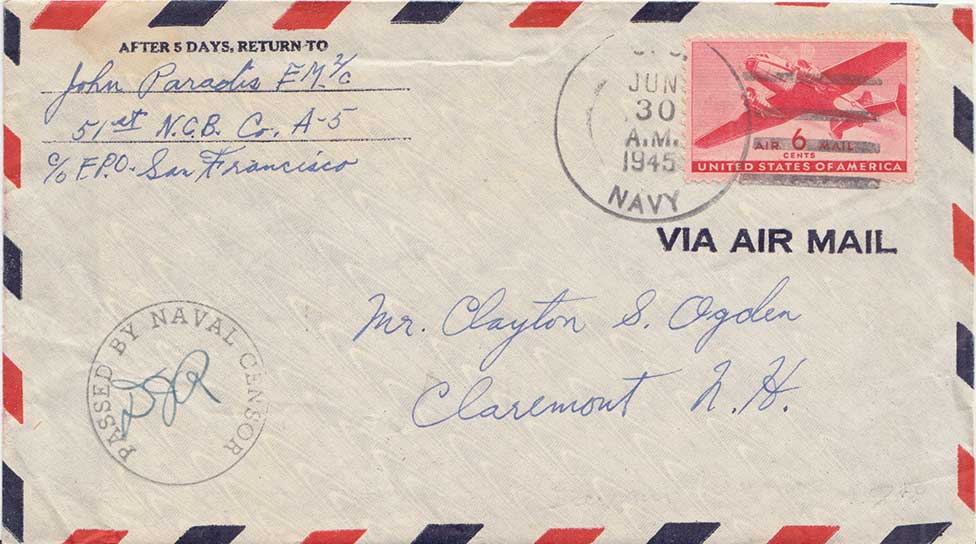 AFTER 5 DAYS, RETURN TO
John Paradis E.M. 2/c
51st N.C.B. Co. A-5
c/o F.P.O. San Francisco
JUN
30
A.M.
1945
NAVY
AIR 6 MAIL
CENTS
UNITED STATES OF AMERICA
VIA AIR MAIL
Mr. Clayton S. Ogden
Claremont N.H.
PASSED BY NAVAL CENSOR